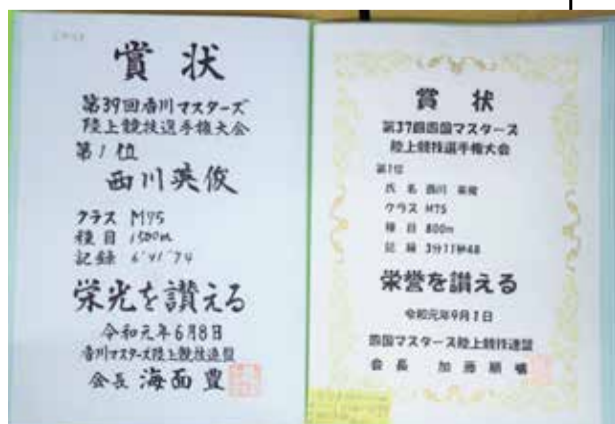 賞状
第39回香川マスターズ
陸上競技選手権大会
第1位
西川英俊
クラス M75
種目 1500m
記録 6'41"74
栄光を讃える
令和元年6月8日
香川マスターズ陸上競技連盟
会長 海面 豊
賞 状
第37回四国マスターズ
陸上競技選手権大会
第1位
氏 名 西川 英俊
クラス M75
種 目 800m
記 録 3分11秒48
栄誉を讃える
令和元年9月1日
四国マスターズ陸上競技連盟
会 長 加 藤 順